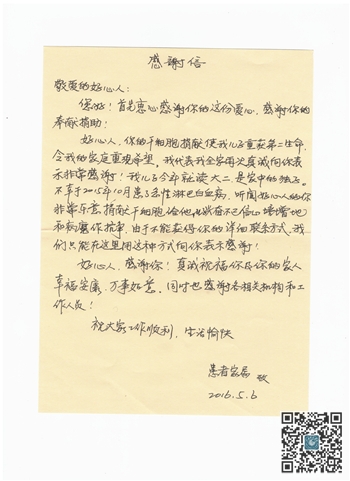 感謝信
敬爱的好心人：
您好！首先衷心感谢你的这份爱心，感谢你的
奉献捐助！
好心人，你的干细胞捐献使我儿子重获第二生命，
令我的家庭重现希望，我代表我全家再次真诚向你表
示非常感谢！我儿子今年就读大二，是家中的独子。
不幸于2015年10月患了急性淋巴白血病，听闻好心人的你
非常乐意捐献干细胞给他，
和病魔作抗争，由于不能获得你的详细联系方式，我
们只能在这里用这种方式向你表示感谢！
好心人，感谢你！真诚祝福你及你的家人
幸福安康，万事如意，同时也感谢各相关机构和工
作人员！
祝大家工作顺利，生活愉快
患者家属 敬
2016.5.6